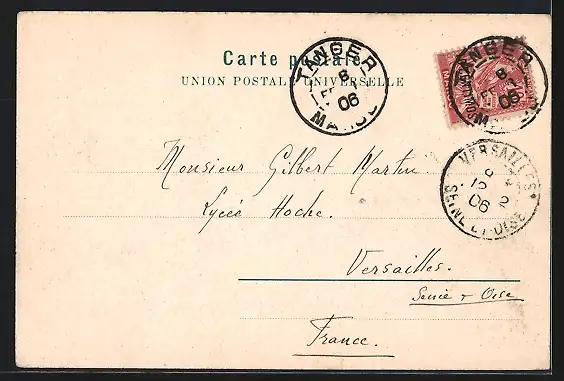 Carte postale
UNION POSTALE UNIVERSELLE
TANGER
8
06
MAROC
TANGER
8
06
VERSAILLES
12 2
06
SEINE-ET-OISE
Monsieur Gilbert Martin
Lycée Hoche.
Versailles.
Seine & Oise
France.